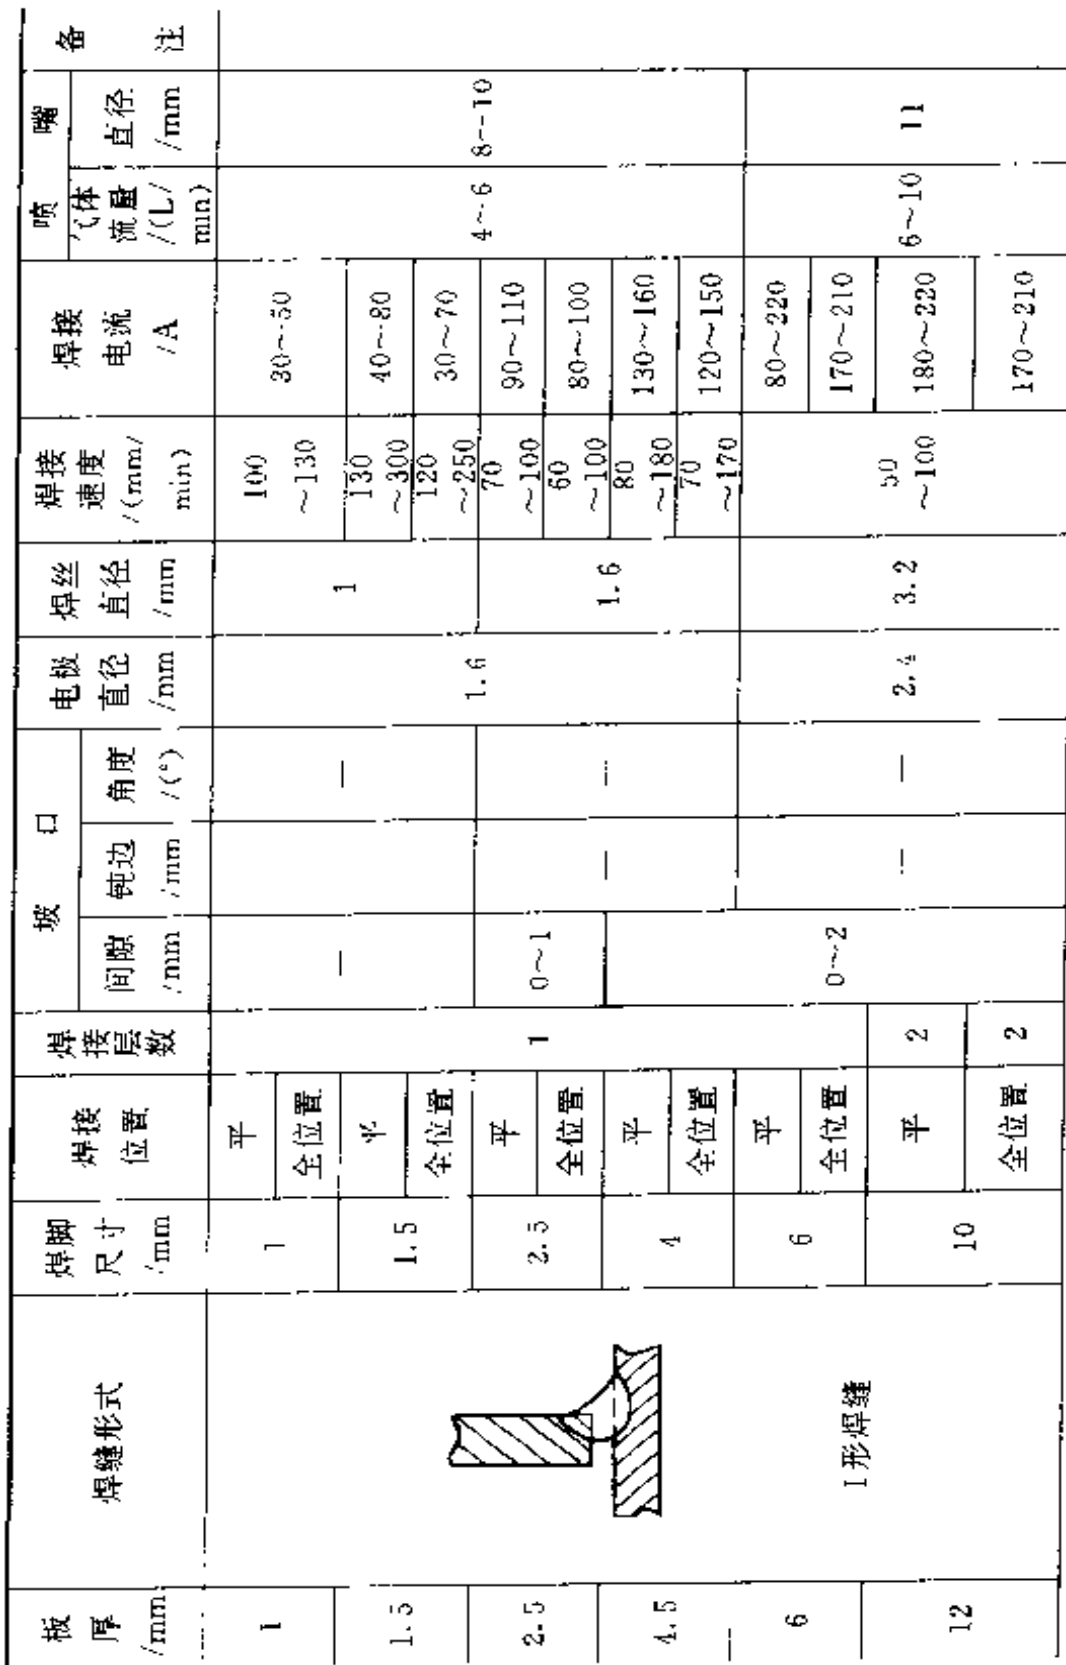 板厚/mm 焊缝形式 焊脚尺寸/mm 焊接位置 焊接层数 坡口 电极直径/mm 焊丝直径/mm 焊接速度/(mm/min) 焊接电流/A 喷嘴 备注
间隙/mm 钝边/mm 角度/(°) 气体流量/(L/min) 直径/mm
1 1 平 1 — — — 1.6 1 100~130 30~50 4~6 8~10
全位置
1.5 1.5 平 130~300 40~80
全位置 120~250 30~70
2.5 2.5 平 0~1 — — 1.6 70~100 90~110
全位置 60~100 80~100
4.5 4 平 0~2 80~180 130~160
全位置 70~170 120~150
6 6 平 — — 2.4 3.2 50~100 80~220 6~10 11
全位置 170~210
12 I形焊缝 10 平 2 180~220
全位置 2 170~210